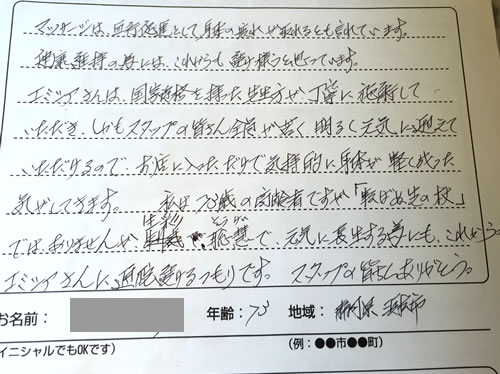 マッサージは、血行促進として身体の疲れが取れるとも言われています。
健康維持の為には、これからも通り続うと思っています。
エミシアさんは、国家資格を持った先生方が、丁寧に施術して
いただき、しかもスタッフの皆さん全員が若く、明るく元気に迎えて
いただけるので、お店に入っただけで気持的に身体が軽く成った
気がしてきます。 私は73歳の高齢者ですが「転ばぬ先の杖」
ではありませんが、 で、元気に長生する為にも、これから
エミシアさんに通院続けるつもりです。 スタッフの皆さんありがとう。
お名前： 年齢：73 地域： 市
イニシャルでもOKです） （例：●●市●●町）